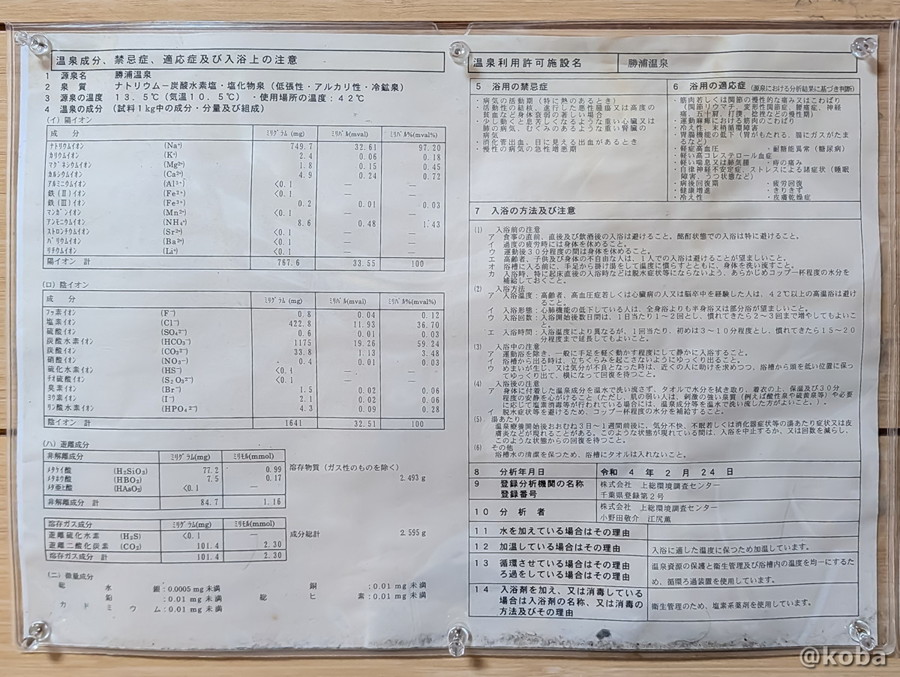 温泉成分、禁忌症、適応症及び入浴上の注意
1 源泉名 勝浦温泉
2 泉質 ナトリウム－炭酸水素塩・塩化物泉（低張性・アルカリ性・冷鉱泉）
3 源泉の温度 13.5℃（気温10.5℃）・使用場所の温度：42℃
4 温泉の成分（試料1kg中の成分・分量及び組成）
（イ）陽イオン
成分 ミリグラム(mg) ミリバル(mval) ミリバル%(mval%)
ナトリウムイオン (Na⁺) 749.7 32.61 97.20
カリウムイオン (K⁺) 2.4 0.06 0.18
マグネシウムイオン (Mg²⁺) 1.8 0.15 0.45
カルシウムイオン (Ca²⁺) 4.9 0.24 0.72
アルミニウムイオン (Al³⁺) <0.1 — —
鉄(Ⅱ)イオン (Fe²⁺) <0.1 — —
鉄(Ⅲ)イオン (Fe³⁺) 0.2 0.01 0.03
マンガンイオン (Mn²⁺) <0.1 — —
アンモニウムイオン (NH₄⁺) 8.6 0.48 1.43
ストロンチウムイオン (Sr²⁺) <0.1 — —
バリウムイオン (Ba²⁺) <0.1 — —
リチウムイオン (Li⁺) <0.1 — —
陽イオン 計 767.6 33.55 100
（ロ）陰イオン
成分 ミリグラム(mg) ミリバル(mval) ミリバル%(mval%)
フッ素イオン (F⁻) 0.8 0.04 0.12
塩素イオン (Cl⁻) 422.8 11.93 36.70
硫酸イオン (SO₄²⁻) 0.6 0.01 0.03
炭酸水素イオン (HCO₃⁻) 1175 19.26 59.24
炭酸イオン (CO₃²⁻) 33.8 1.13 3.48
硝酸イオン (NO₃⁻) 0.4 0.01 0.03
硫化水素イオン (HS⁻) <0.1 — —
チオ硫酸イオン (S₂O₃²⁻) <0.1 — —
臭素イオン (Br⁻) 1.5 0.02 0.06
ヨウ素イオン (I⁻) 2.1 0.02 0.06
リン酸水素イオン (HPO₄²⁻) 4.3 0.09 0.28
陰イオン 計 1641 32.51 100
（ハ）遊離成分
非解離成分 ミリグラム(mg) ミリモル(mmol)
メタケイ酸 (H₂SiO₃) 77.2 0.99
メタホウ酸 (HBO₂) 7.5 0.17
メタ亜ヒ酸 (HAsO₂) <0.1 —
非解離成分 計 84.7 1.16
溶存物質（ガス性のものを除く）
2.493 g
溶存ガス成分 ミリグラム(mg) ミリモル(mmol)
遊離硫化水素 (H₂S) <0.1 —
遊離二酸化炭素 (CO₂) 101.4 2.30
溶存ガス成分 計 101.4 2.30
成分総計 2.595 g
（ニ）微量成分
総水銀：0.0005 mg 未満 銅：0.01 mg 未満
鉛：0.01 mg 未満 総ヒ素：0.01 mg 未満
カドミウム：0.01 mg 未満
温泉利用許可施設名 勝浦温泉
5 浴用の禁忌症
・病気の活動期（特に熱のあるとき）
・活動性の結核、進行した悪性腫瘍又は高度の
貧血など身体衰弱の著しい場合
・少し動くと息苦しくなるような重い心臓又は
肺の病気、むくみのあるような重い腎臓の
病気
・消化管出血、目に見える出血があるとき
・慢性の病気の急性増悪期
6 浴用の適応症（源泉における分析結果に基づき判断）
・筋肉若しくは関節の慢性的な痛み又はこわばり
（関節リウマチ、変形性関節症、腰痛症、神経
痛、五十肩、打撲、捻挫などの慢性期）
・運動麻痺における筋肉のこわばり
・冷え性、末梢循環障害
・胃腸機能の低下（胃がもたれる、腸にガスがたま
るなど）
・軽症高血圧 ・耐糖能異常（糖尿病）
・軽い高コレステロール血症
・軽い喘息又は肺気腫 ・痔の痛み
・自律神経不安定症、ストレスによる諸症状（睡眠
障害、うつ状態など）
・病後回復期 ・疲労回復
・健康増進 ・きりきず
・冷え性 ・皮膚乾燥症
7 入浴の方法及び注意
(1) 入浴前の注意
ア 食事の直前、直後及び飲酒後の入浴は避けること。酩酊状態での入浴は特に避けること。
イ 過度の疲労時には身体を休めること。
ウ 運動後30分程度の間は身体を休めること。
エ 高齢者、子供及び身体の不自由な人は、1人での入浴は避けることが望ましいこと。
オ 浴槽に入る前に、手足から掛け湯をして温度に慣らすとともに、身体を洗い流すこと。
カ 入浴時、特に起床直後の入浴時などは脱水症状等にならないよう、あらかじめコップ一杯程度の水分を
補給しておくこと。
(2) 入浴方法
ア 入浴温度：高齢者、高血圧症若しくは心臓病の人又は脳卒中を経験した人は、42℃以上の高温浴は避け
ること。
イ 入浴形態：心肺機能の低下している人は、全身浴よりも半身浴又は部分浴が望ましいこと。
ウ 入浴回数：入浴開始後数日間は、1日当たり1～2回とし、慣れてきたら2～3回まで増やしてもよい
こと。
エ 入浴時間：入浴温度により異なるが、1回当たり、初めは3～10分程度とし、慣れてきたら15～20
分程度まで延長してもよいこと。
(3) 入浴中の注意
ア 運動浴を除き、一般に手足を軽く動かす程度にして静かに入浴すること。
イ 浴槽から出る時は、立ちくらみを起こさないようにゆっくり出ること。
ウ めまいが生じ、又は気分が不良となった時は、近くの人に助けを求めつつ、浴槽から頭を低い位置に保っ
てゆっくり出て、横になって回復を待つこと。
(4) 入浴後の注意
ア 身体に付着した温泉成分を温水で洗い流さず、タオルで水分を拭き取り、着衣の上、保温及び30分
程度の安静を心がけること（ただし、肌の弱い人は、刺激の強い泉質（例えば酸性泉や硫黄泉等）や必要
に応じて塩素消毒等が行われている場合には、温泉成分等を温水で洗い流した方がよいこと。）。
イ 脱水症状等を避けるため、コップ一杯程度の水分を補給すること。
(5) 湯あたり
温泉療養開始後おおむね3日～1週間前後に、気分不快、不眠若しくは消化器症状等の湯あたり症状又は皮
膚炎などが現れることがある。このような状態が現れている間は、入浴を中止するか、又は回数を減らし、
このような状態からの回復を待つこと。
(6) その他
浴槽水の清潔を保つため、浴槽にタオルは入れないこと。
8 分析年月日 令和 4 年 2 月 24 日
9 登録分析機関の名称 株式会社 上総環境調査センター
登録番号 千葉県登録第2号
10 分析者 株式会社 上総環境調査センター
小野田敬介 江尻薫
11 水を加えている場合はその理由
12 加温している場合はその理由 入浴に適した温度に保つため加温しています。
13 循環させている場合はその理由 温泉資源の保護と衛生管理及び浴槽内の温度を均一にするた
ろ過をしている場合はその理由 め、循環ろ過装置を使用しています。
14 入浴剤を加え、又は消毒している
場合は入浴剤の名称、又は消毒の 衛生管理のため、塩素系薬剤を使用しています。
方法及びその理由
@koba